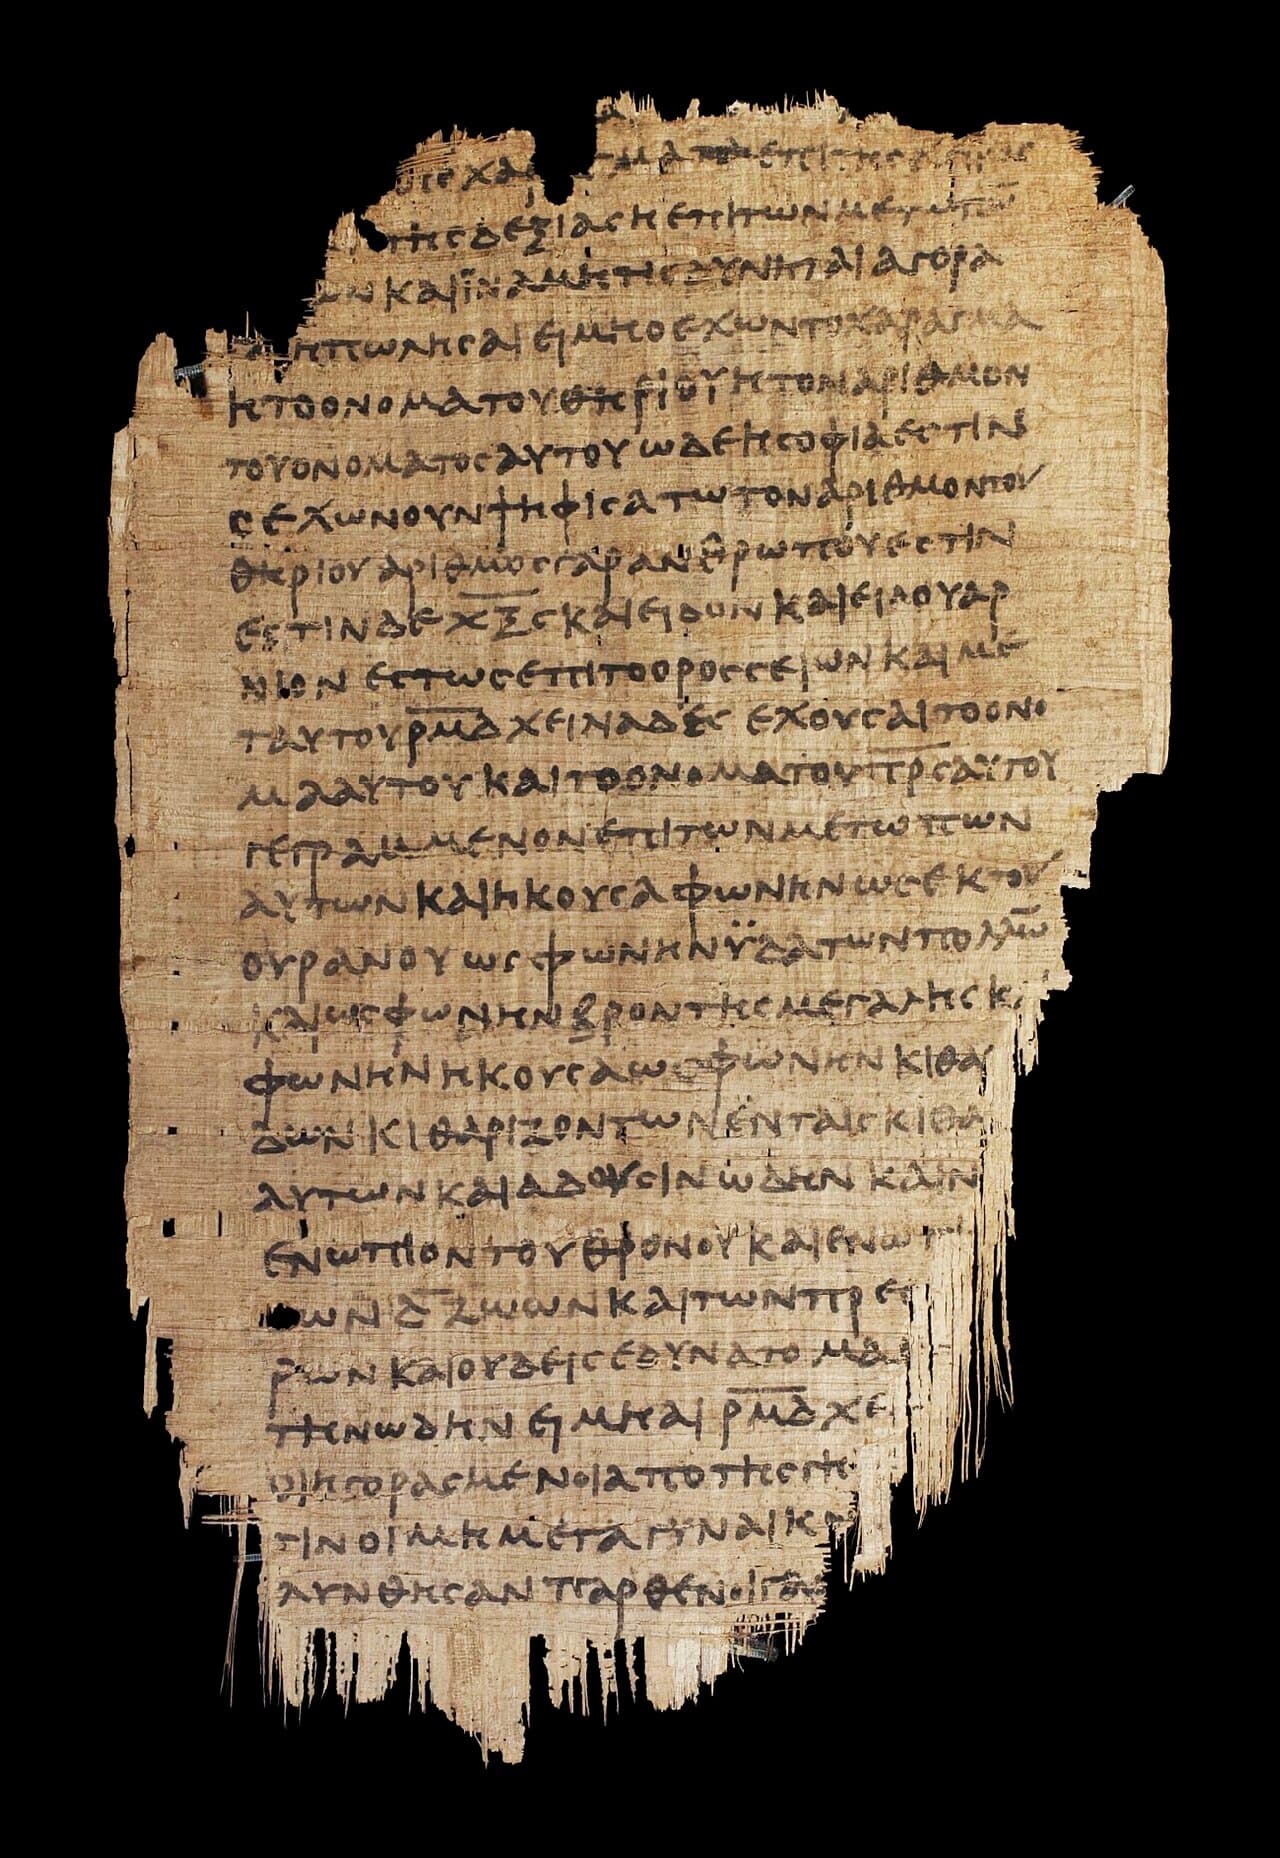 ΕΠΙΤΗϹ
ΤΗϹΔΕΞΙΑϹΗΕΠΙΤΩΝΜΕΤΩΠΩ̅
ΩΝΚΑΙΪΝΑΜΗΤΙϹΔΥΝΗΤΑΙΑΓΟΡΑ
ΗΠΩΛΗϹΑΙΕΙΜΗΟΕΧΩΝΤΟΧΑΡΑΓΜΑ
ΗΤΟΟΝΟΜΑΤΟΥΘΗΡΙΟΥΗΤΟΝΑΡΙΘΜΟΝ
ΤΟΥΟΝΟΜΑΤΟϹΑΥΤΟΥΩΔΕΗϹΟΦΙΑΕϹΤΙΝ
ΟΕΧΩΝΟΥΝΨΗΦΙϹΑΤΩΤΟΝΑΡΙΘΜΟΝΤΟΥ
ΘΗΡΙΟΥΑΡΙΘΜΟϹΓΑΡΑΝΘΡΩΠΟΥΕϹΤΙΝ
ΕϹΤΙΝΔΕΧ̅Ξ̅Ϲ̅ΚΑΙΕΙΔΟΝΚΑΙΕΙΔΟΥΑΡ
ΝΙΟΝΕϹΤΩϹΕΠΙΤΟΟΡΟϹϹΕΙΩΝΚΑΙΜΕ
ΤΑΥΤΟΥΡ̅Μ̅Δ̅ΧΕΙΛΙΑΔΕϹΕΧΟΥϹΑΙΤΟΟΝΟ
ΜΑΑΥΤΟΥΚΑΙΤΟΟΝΟΜΑΤΟΥΠ̅Ρ̅Ϲ̅ΑΥΤΟΥ
ΓΕΓΡΑΜΜΕΝΟΝΕΠΙΤΩΝΜΕΤΩΠΩΝ
ΑΥΤΩΝΚΑΙΗΚΟΥϹΑΦΩΝΗΝΩϹΕΚΤΟΥ
ΟΥΡΑΝΟΥΩϹΦΩΝΗΝΫΔΑΤΩΝΠΟΛΛΩ̅
ΚΑΙΩϹΦΩΝΗΝΒΡΟΝΤΗϹΜΕΓΑΛΗϹΚ
ΦΩΝΗΝΗΚΟΥϹΑΩϹΦΩΝΗΝΚΙΘΑ
ΔΩΝΚΙΘΑΡΙΖΟΝΤΩΝΕΝΤΑΙϹΚΙΘΑ
ΑΥΤΩΝΚΑΙΑΔΟΥϹΙΝΩΔΗΝΚΑΙΝ
ΕΝΩΠΙΟΝΤΟΥΘΡΟΝΟΥΚΑΙΕΝΩΠΙ
ΩΝΔ̅ΖΩΩΝΚΑΙΤΩΝΠΡΕϹ
ΡΩΝΚΑΙΟΥΔΕΙϹΕΔΥΝΑΤΟΜΑ
ΤΗΝΩΔΗΝΕΙΜΗΑΙΡ̅Μ̅Δ̅ΧΕΙ
ΟΙΗΓΟΡΑϹΜΕΝΟΙΑΠΟΤΗϹΓΗ
ΤΙΝΟΙΜΗΜΕΤΑΓΥΝΑΙΚ
ΛΥΝΘΗϹΑΝΠΑΡΘΕΝΟΙΓΑ